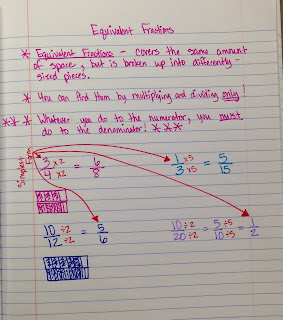 Equivalent Fractions
* Equivalent Fractions - covers the same amount
of space, but is broken up into differently-
sized pieces.
* You can find them by multiplying and dividing only!
*** Whatever you do to the numerator, you must
do to the denominator! ***
Simplest Form
3/4 ×2/×2 = 6/8
1/3 ×5/×5 = 5/15
10/12 ÷2/÷2 = 5/6
10/20 ÷2/÷2 = 5/10 ÷5/÷5 = 1/2